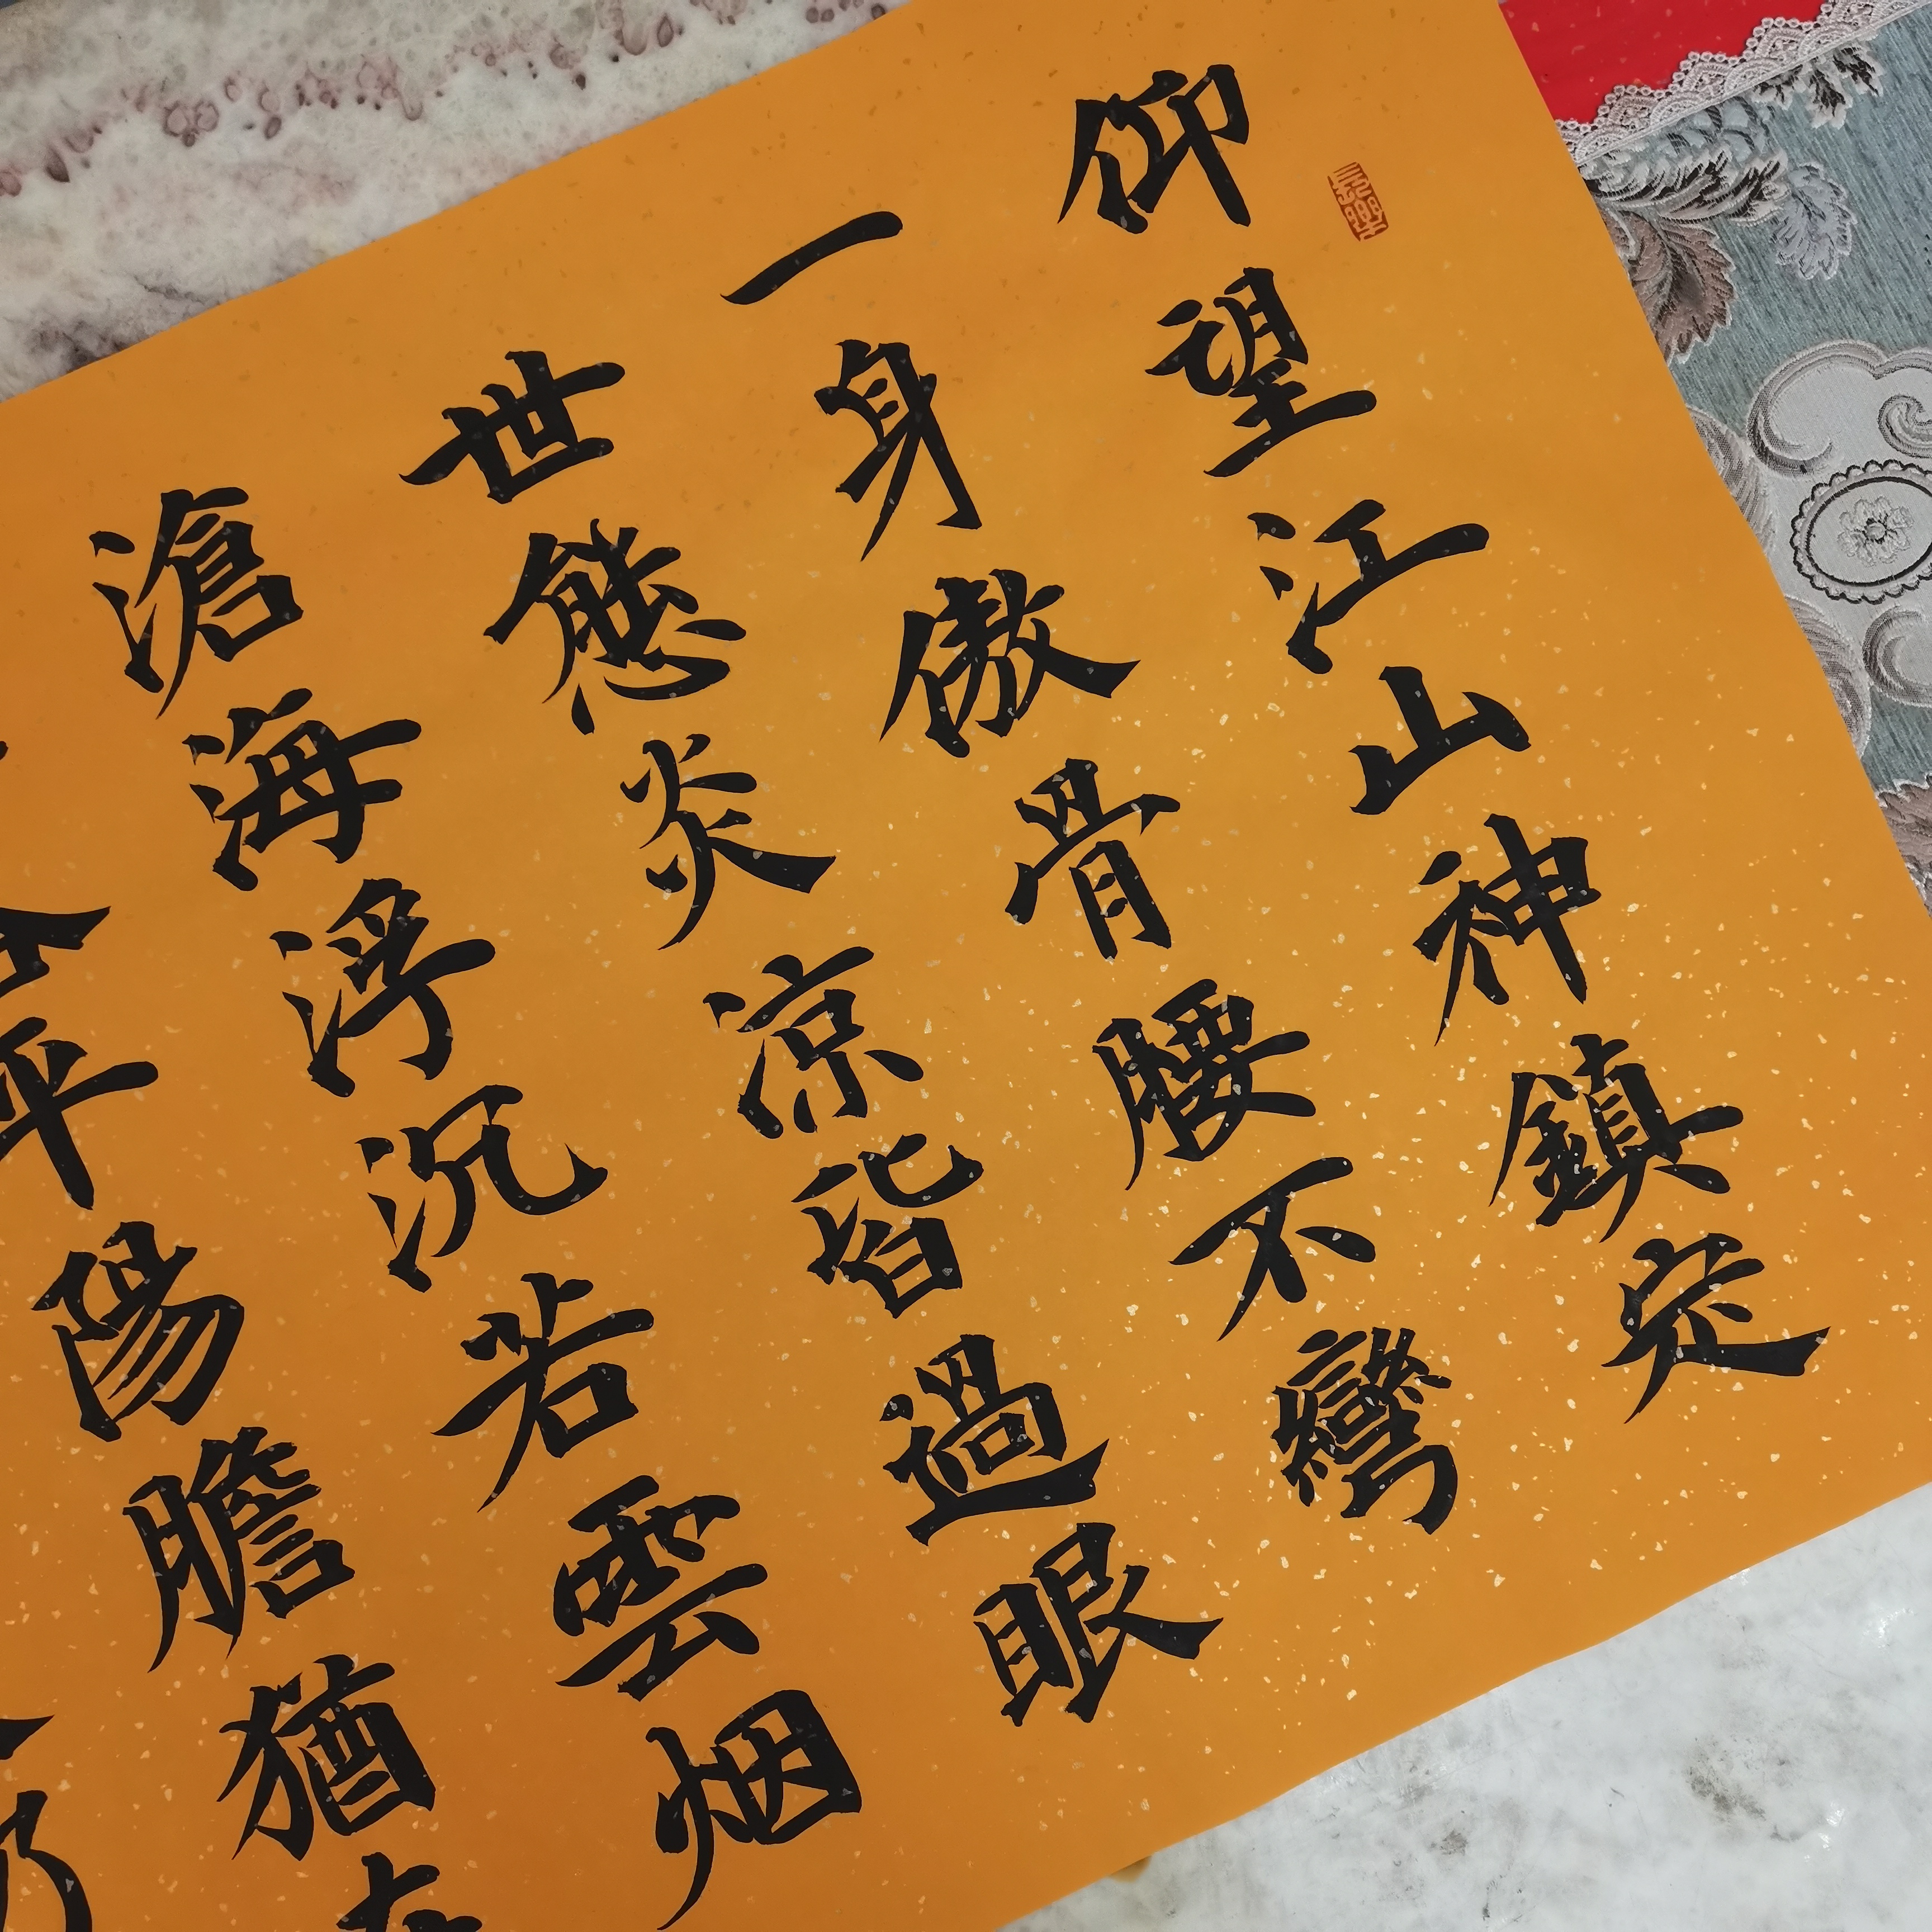 仰望江山神鎮定
一身傲骨腰不彎
世態炎涼皆過眼
滄海浮沉若雲烟
平陽膽猶